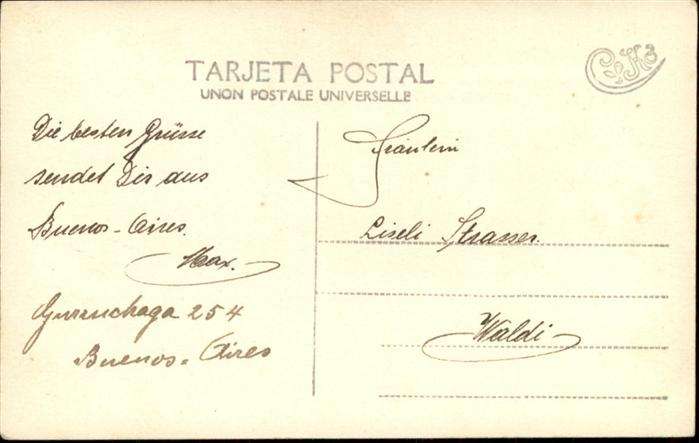 TARJETA POSTAL
UNON POSTALE UNIVERSELLE
Die besten Grüsse
sendet Dir aus
Buenos-Aires.
Max.
Gurruchaga 254
Buenos-Aires
Fräulein
Liseli Strasser.
Waldi